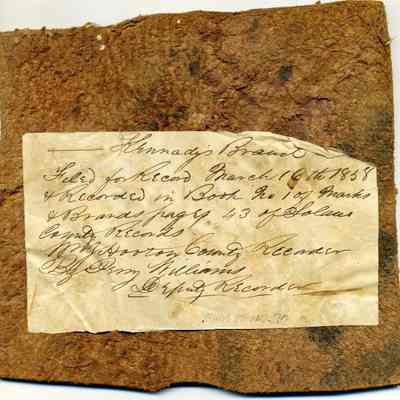 Kennadys Brand
Filed for Record March 16th 1858
& Recorded in Book No 1 of Marks
& Brands pages 43 of Solano
County Records
County Recorder
By Williams
Deputy Recorder